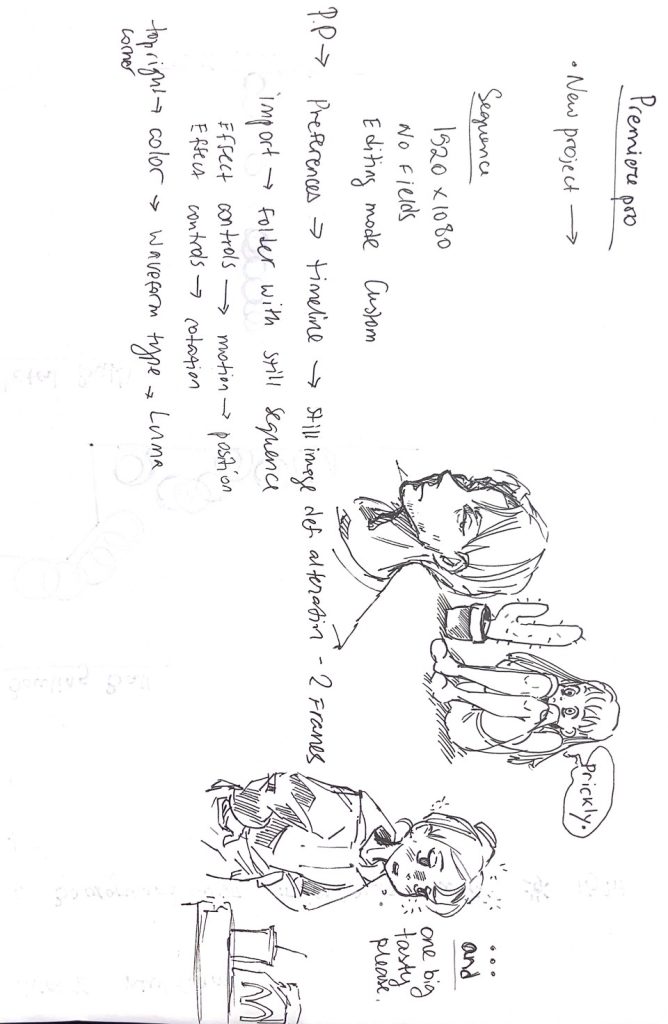 Premiere pro
• New project →
Sequence
1920 x 1080
No Fields
Editing mode Custom
P.P → Preferences → timeline → still image def alteration - 2 Frames
import → folder with still sequence
Effect controls → motion → position
Effect controls → rotation
top right → color → waveform type → Luma
corner
Prickly.
...
and
one big
tasty
please.